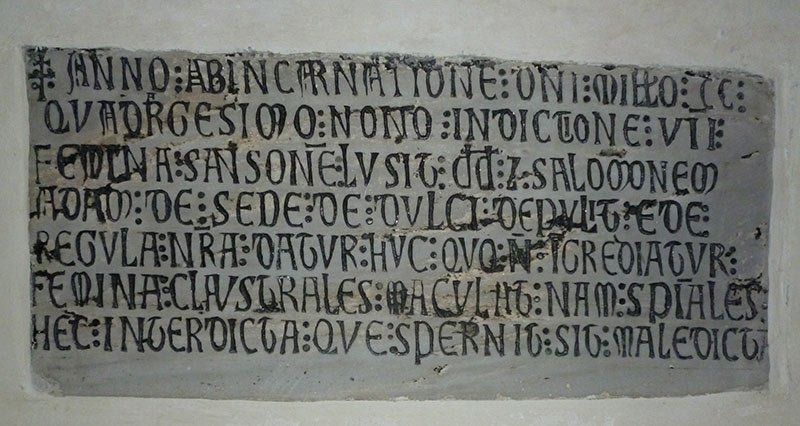 ✝ ANNO : AB INCARNATIONE : DNI : MILLO : CC :
QUADRGESIMO : NONO : INDICTIONE : VII :
FEMINA : SANSONE LUSIT : DD : 7 : SALOMONEM
ADAM : DE : SEDE : DE : DULCI : DEPULIT : E DE
REGULA : NRA : DATUR : HUC : QUO : N : IGREDIATUR :
FEMINA : CLAUSTRALES : MACULAT : NAM : SPIALES :
HEC : INTERDICTA : QUE : SPERNIT : SIT : MALEDICTA